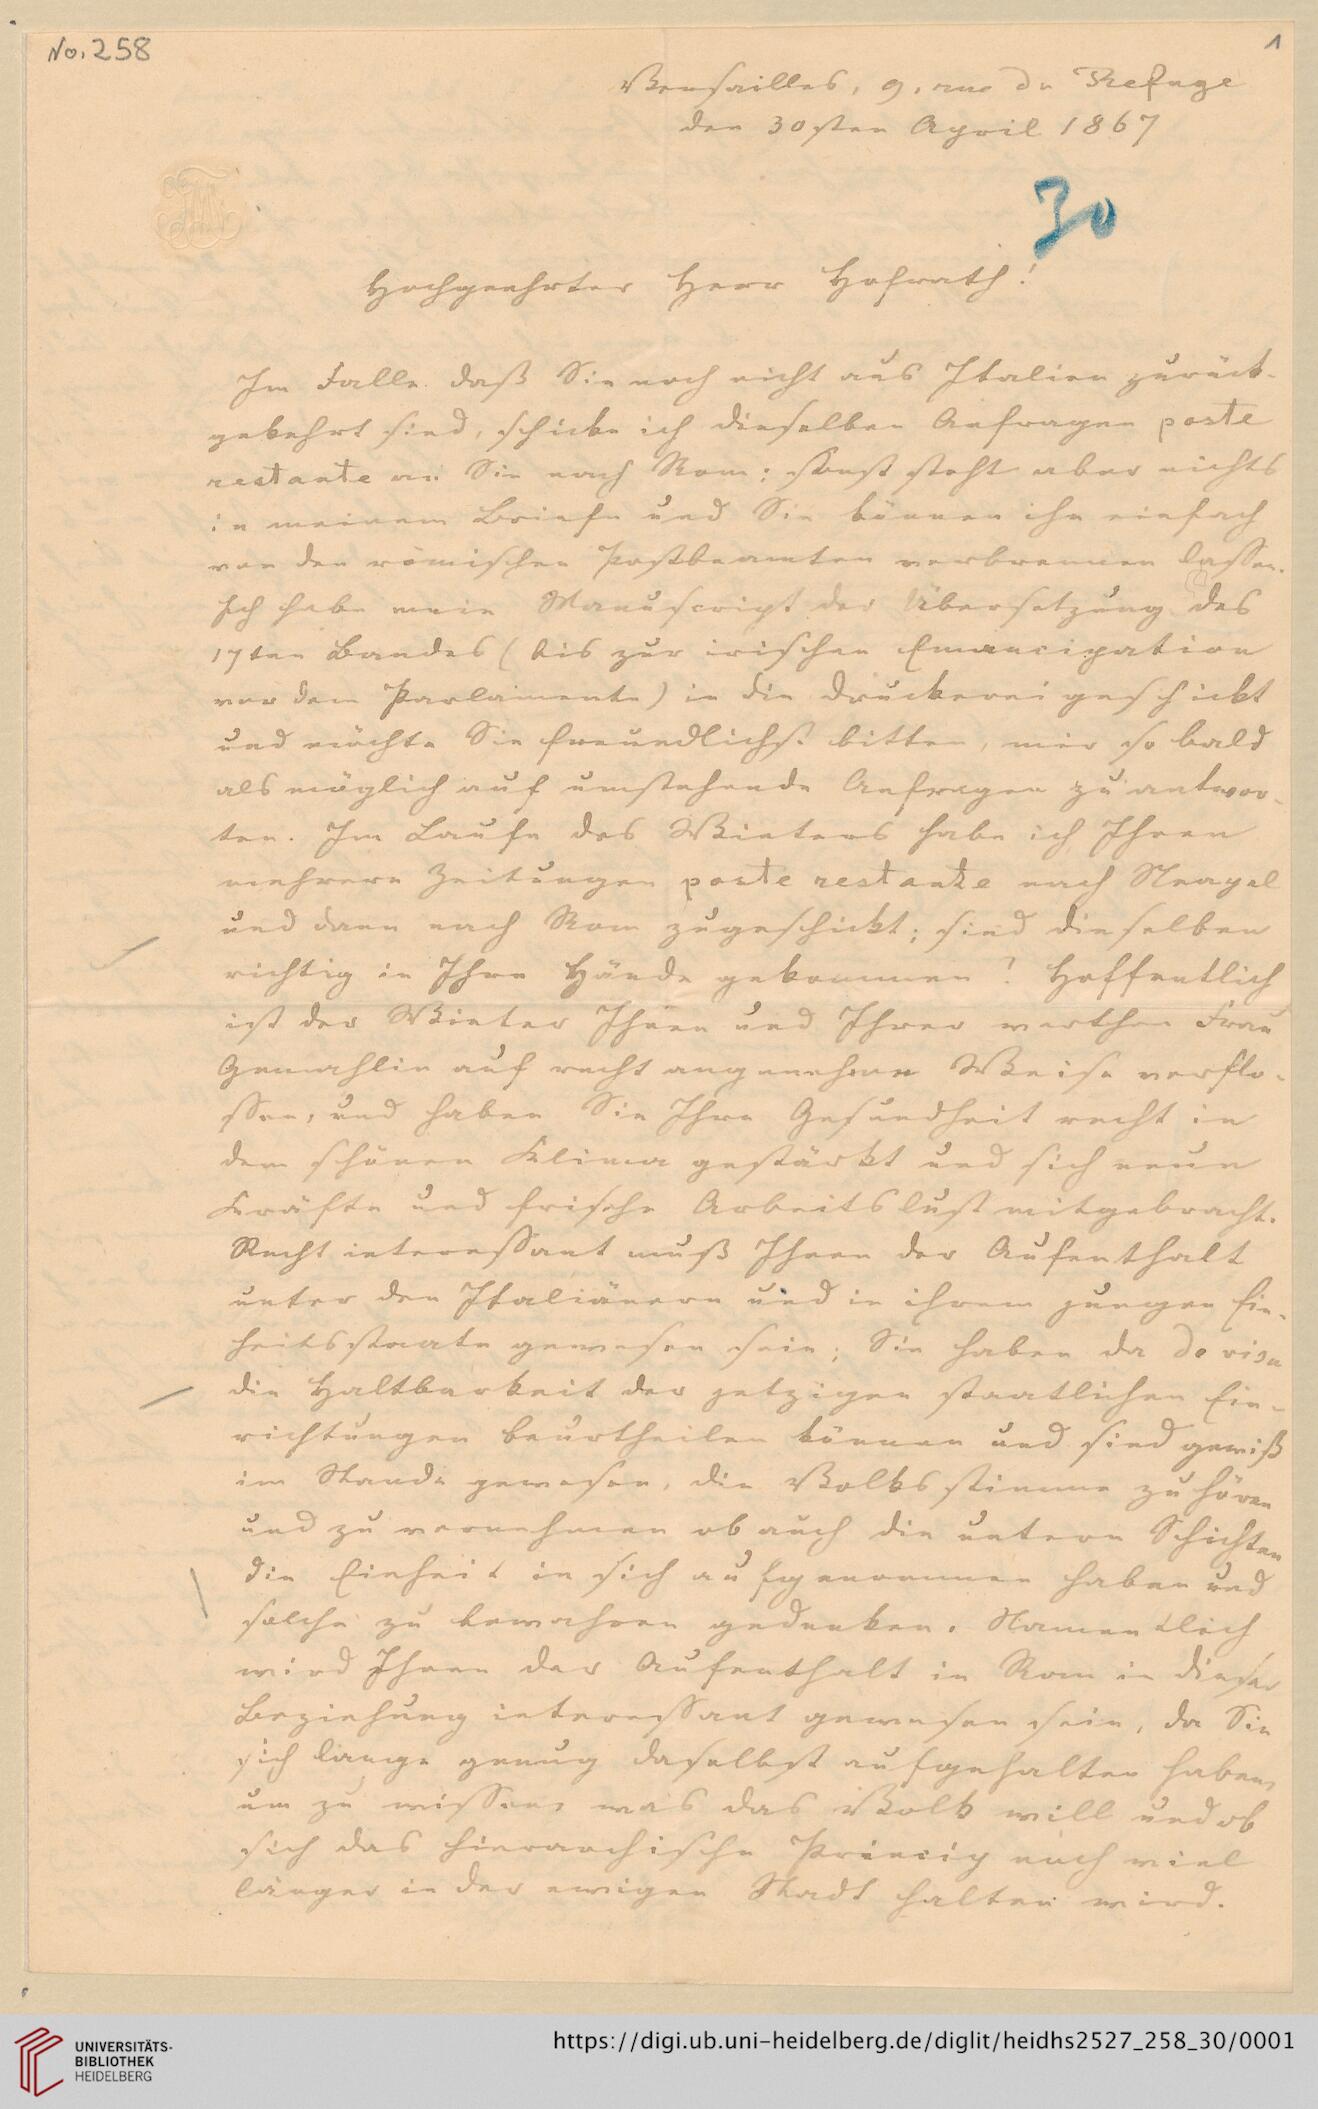 No. 258
1
Versailles, 9, rue du Refuge
den 30sten April 1867
30
Hochgeehrter Herr Hofrath!
Im Falle daß Sie noch nicht aus Italien zurück-
gekehrt sind, schicke ich dieselben Anfragen poste
restante an Sie nach Rom; sonst steht aber nichts
in meinem Briefe und Sie können ihn einfach
von den römischen Postbeamten verbrennen lassen.
Ich habe mein Manuscript der Übersetzung des
17ten Bandes (bis zur irischen Emancipation
vor dem Parlamente) in die Druckerei geschickt
und möchte Sie freundlichst bitten, mir so bald
als möglich auf umstehende Anfragen zu antwor-
ten. Im Laufe des Winters habe ich Ihnen
mehrere Zeitungen poste restante nach Neapel
und dann nach Rom zugeschickt; sind dieselben
richtig in Ihre Hände gekommen? Hoffentlich
ist der Winter Ihnen und Ihrer werthen Frau
Gemahlin auf recht angenehme Weise verflo-
ssen, und haben Sie Ihre Gesundheit recht in
dem schönen Klima gestärkt und sich neue
Kräfte und frische Arbeitslust mitgebracht.
Recht interessant muß Ihnen der Aufenthalt
unter den Italiänern und in ihrem jungen Ein-
heitsstaate gewesen sein; Sie haben da de visu
die Haltbarkeit der jetzigen staatlichen Ein-
richtungen beurtheilen können und sind gewiß
im Stande gewesen, die Volksstimme zu hören
und zu vernehmen ob auch die untern Schichten
die Einheit in sich aufgenommen haben und
solche zu bewahren gedenken. Namentlich
wird Ihnen der Aufenthalt in Rom in dieser
Beziehung interessant gewesen sein, da Sie
sich lange genug daselbst aufgehalten haben,
um zu wissen, was das Volk will und ob
sich das hierarchische Princip noch viel
länger in der ewigen Stadt halten wird.
UNIVERSITÄTS-
BIBLIOTHEK
HEIDELBERG
https://digi.ub.uni-heidelberg.de/diglit/heidhs2527_258_30/0001